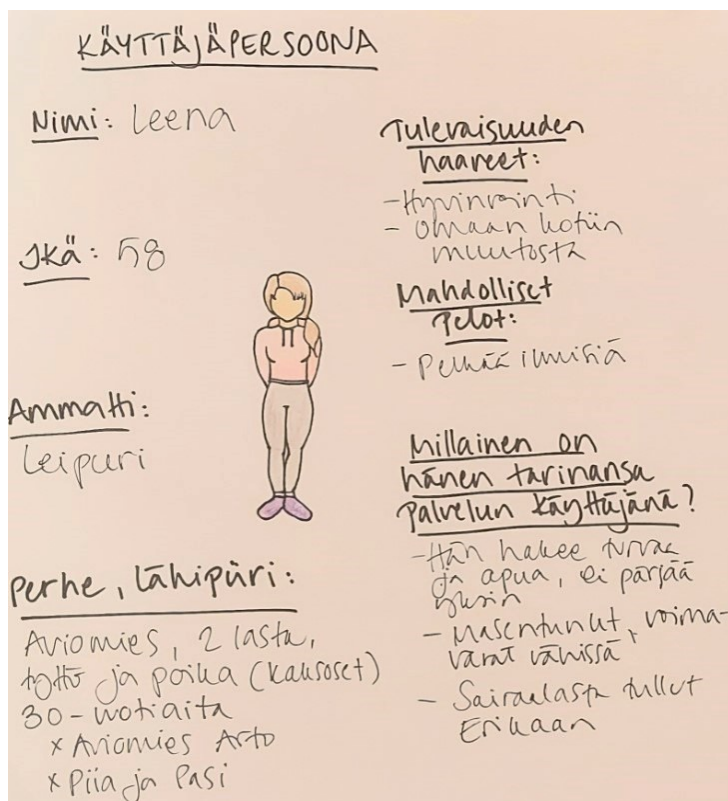 KÄYTTÄJÄPERSOONA
Nimi: Leena
Ikä: 58
Ammatti:
Leipuri
Perhe, Lähipiiri:
Aviomies, 2 lasta,
tyttö ja poika (kaksoset)
30-vuotiaita
x Aviomies Arto
x Piia ja Pasi
Tulevaisuuden
haaveet:
- Hyvinvointi
- Omaan kotiin
muutosta
Mahdolliset
Pelot:
- Pelkää ihmisiä
Millainen on
hänen tarinansa
Palvelun käyttäjänä?
- Hän hakee turvaa
ja apua, ei pärjää
yksin
- Masentunut, voima-
varat vähissä
- Sairaalasta tullut
Erikaan